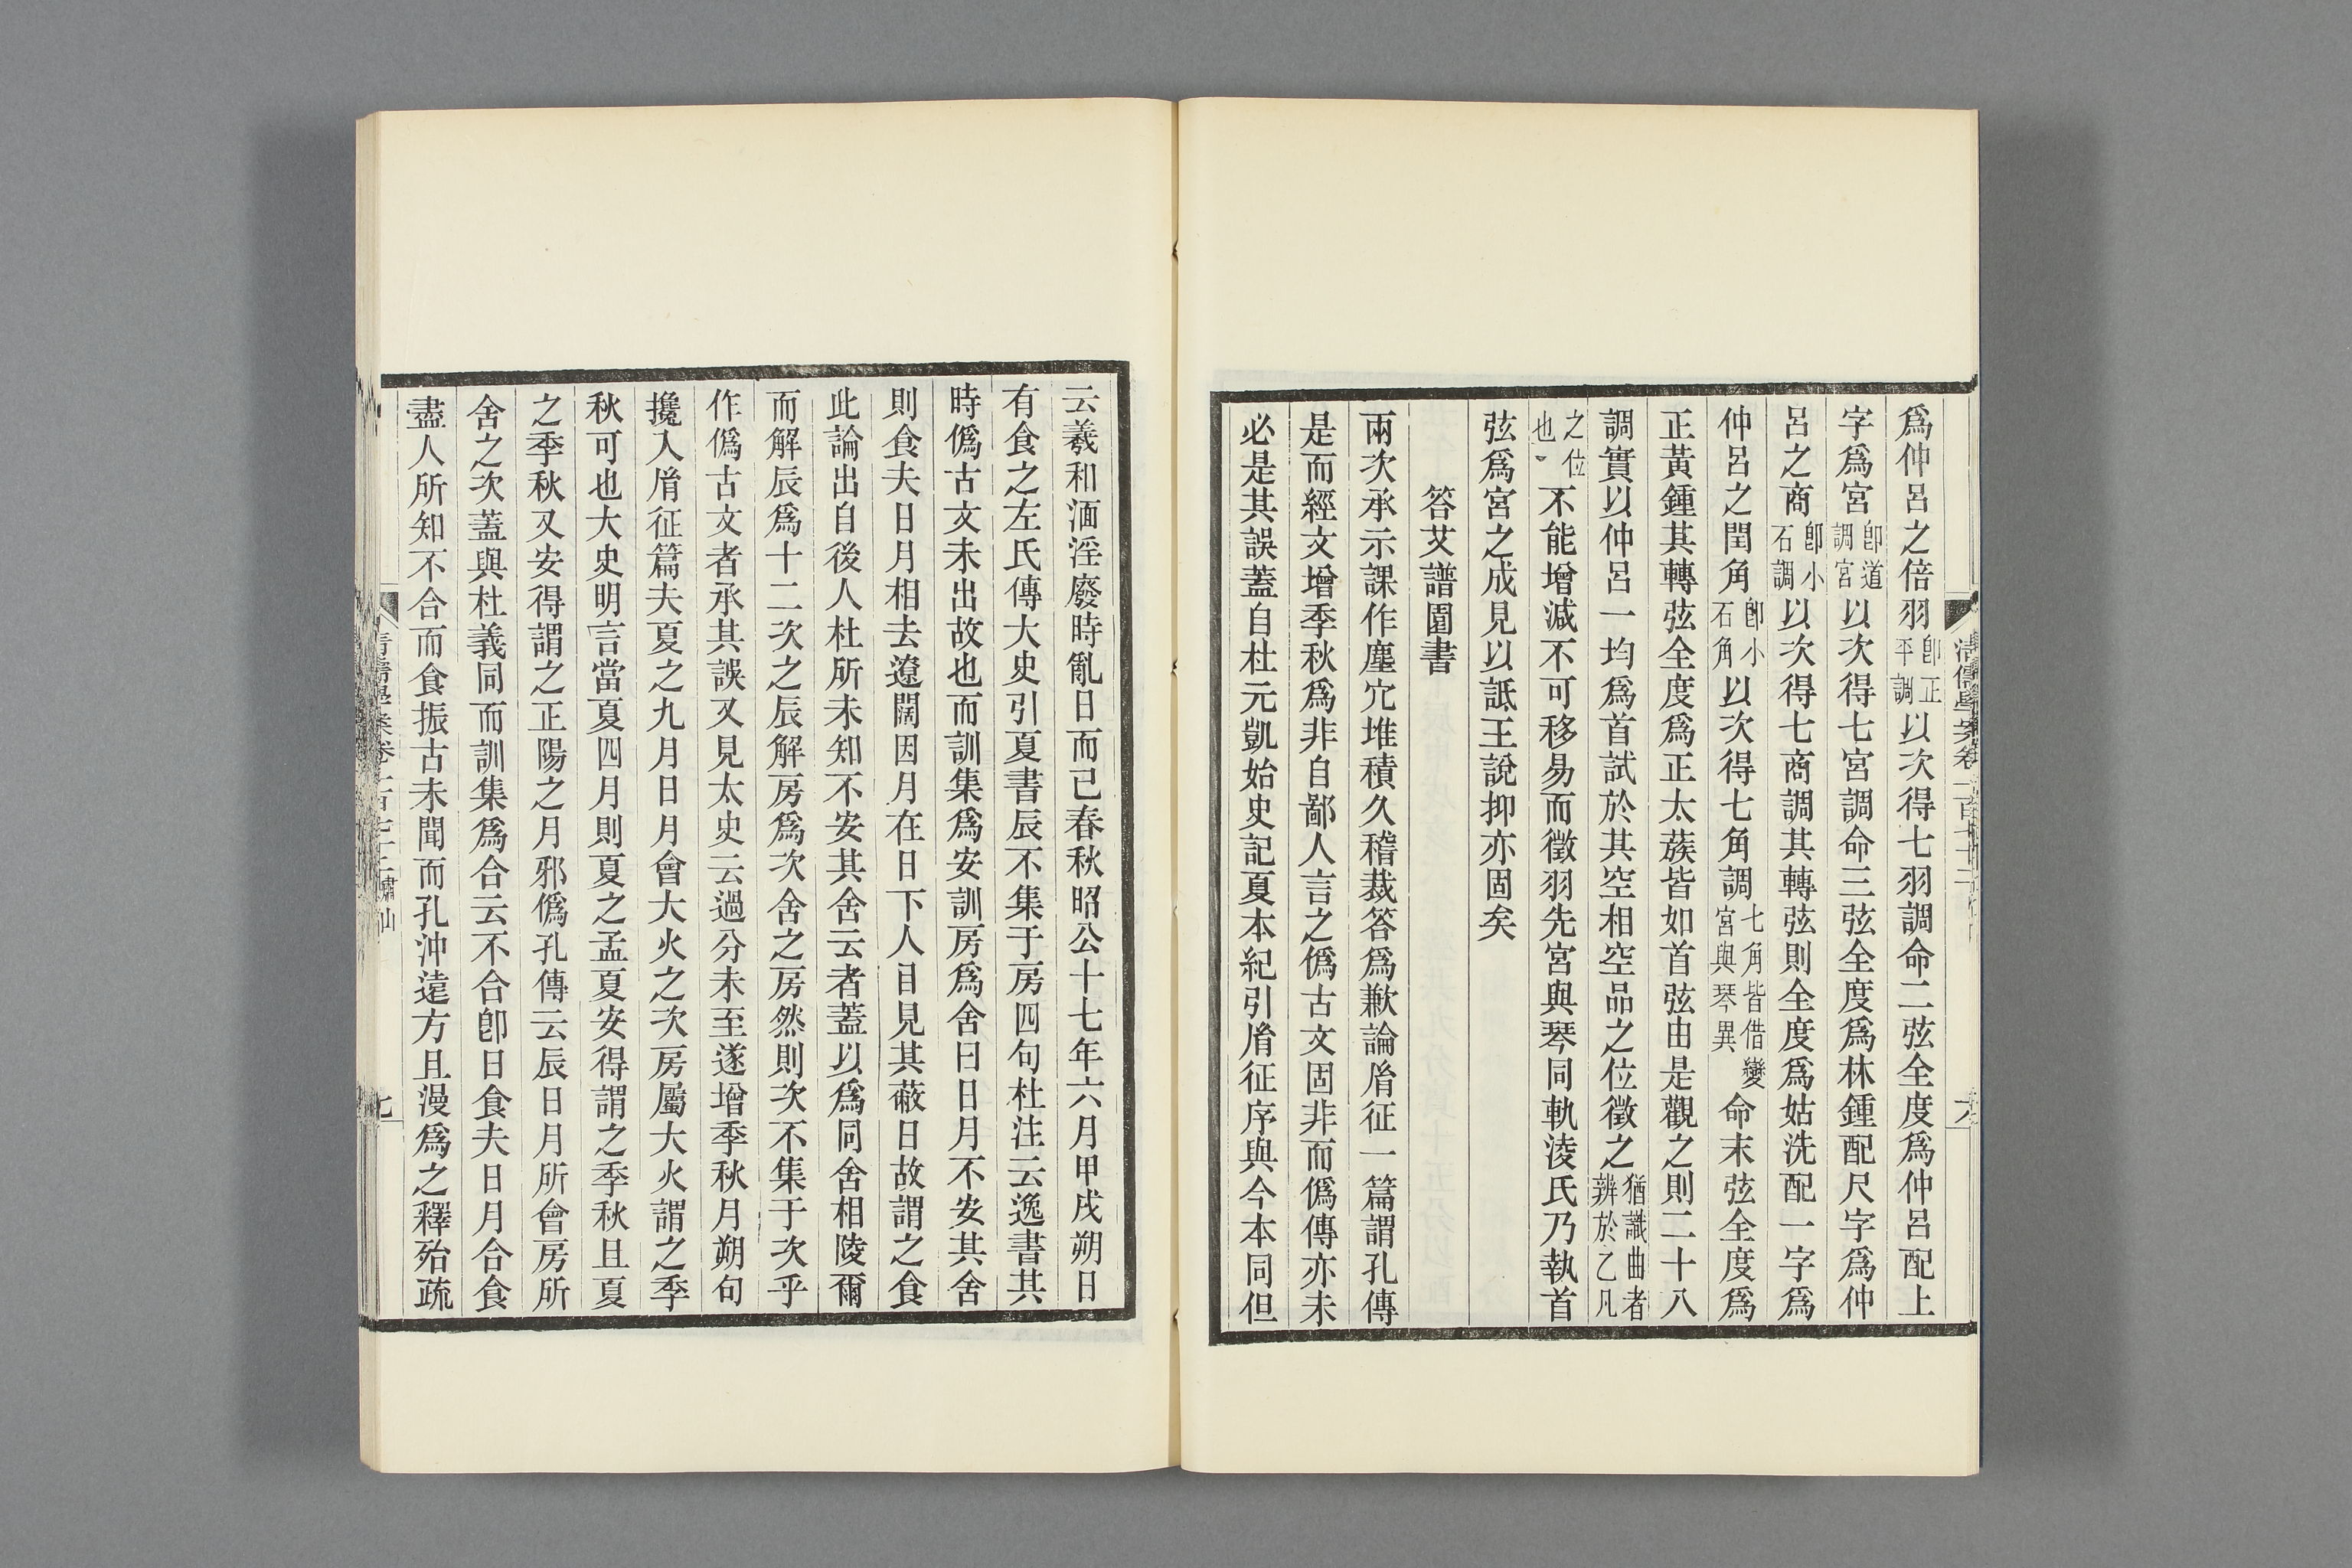 爲仲呂之倍羽卽正平調以次得七羽調命二弦全度爲仲呂配上
字爲宮卽道調宮以次得七宮調命三弦全度爲林鍾配尺字爲仲
呂之商卽小石調以次得七商調其轉弦則全度爲姑洗配一字爲
仲呂之閏角卽小石角以次得七角調七角皆借變宮與琴異命末弦全度爲
正黃鍾其轉弦全度爲正太蔟皆如首弦由是觀之則二十八
調實以仲呂一均爲首試於其空相空品之位徵之猶譏曲者辨於乙凡
之位也不能增減不可移易而徵羽先宮與琴同軌淩氏乃執首
弦爲宮之成見以詆王說抑亦固矣
答艾譜園書
兩次承示課作塵冗堆積久稽裁答爲歉論胤征一篇謂孔傳
是而經文增季秋爲非自鄙人言之僞古文固非而僞傳亦未
必是其誤蓋自杜元凱始史記夏本紀引胤征序與今本同但
云羲和湎淫廢時亂日而已春秋昭公十七年六月甲戌朔日
有食之左氏傳大史引夏書辰不集于房四句杜注云逸書其
時僞古文未出故也而訓集爲安訓房爲舍曰日月不安其舍
則食夫日月相去遼闊因月在日下人目見其蔽日故謂之食
此論出自後人杜所未知不安其舍云者蓋以爲同舍相陵爾
而解辰爲十二次之辰解房爲次舍之房然則次不集于次乎
作僞古文者承其誤又見太史云過分未至遂增季秋月朔句
攙入胤征篇夫夏之九月日月會大火之次房屬大火謂之季
秋可也大史明言當夏四月則夏之孟夏安得謂之季秋且夏
之季秋又安得謂之正陽之月邪僞孔傳云辰日月所會房所
舍之次蓋與杜義同而訓集爲合云不合卽日食夫日月合食
盡人所知不合而食振古未聞而孔沖遠方且漫爲之釋殆疏